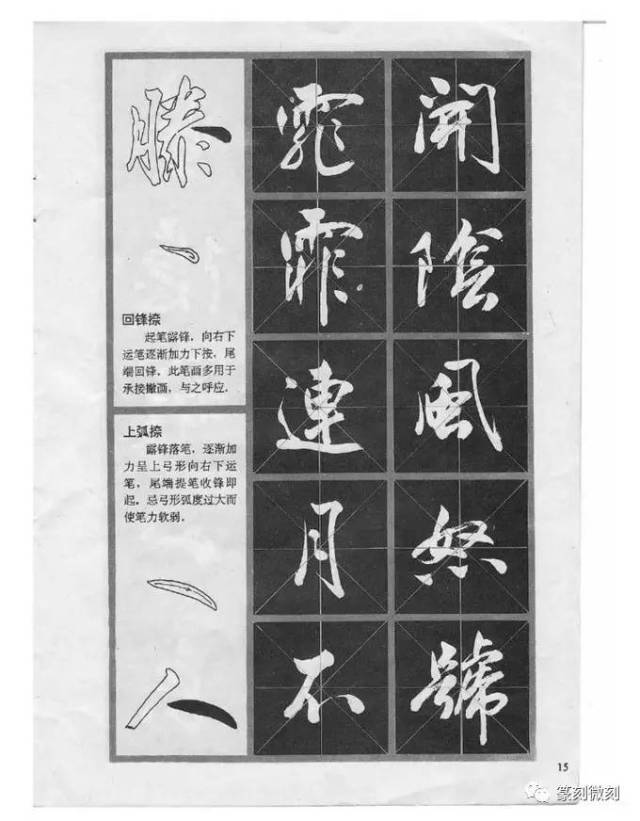 滕
回锋捺
起笔露锋，向右下
运笔逐渐加力下按，尾
端回锋。此笔画多用于
承接撇画，与之呼应。
上弧捺
露锋落笔，逐渐加
力呈上弓形向右下运
笔，尾端提笔收锋即
起，忌弓形弧度过大而
使笔力软弱。
人
霏霏連月不
開陰風怒號
15
篆刻微刻